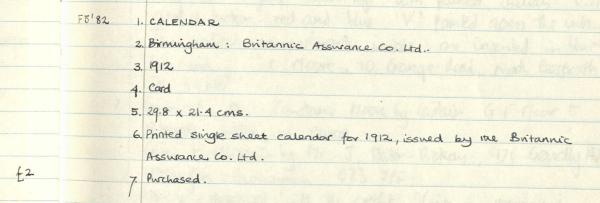 F5'82 1. CALENDAR
2. Birmingham : Britannic Assurance Co. Ltd..
3. 1912
4. Card
5. 29.8 x 21.4 cms.
6. Printed single sheet calendar for 1912, issued by the Britannic
Assurance Co. Ltd.
£2 7. Purchased.